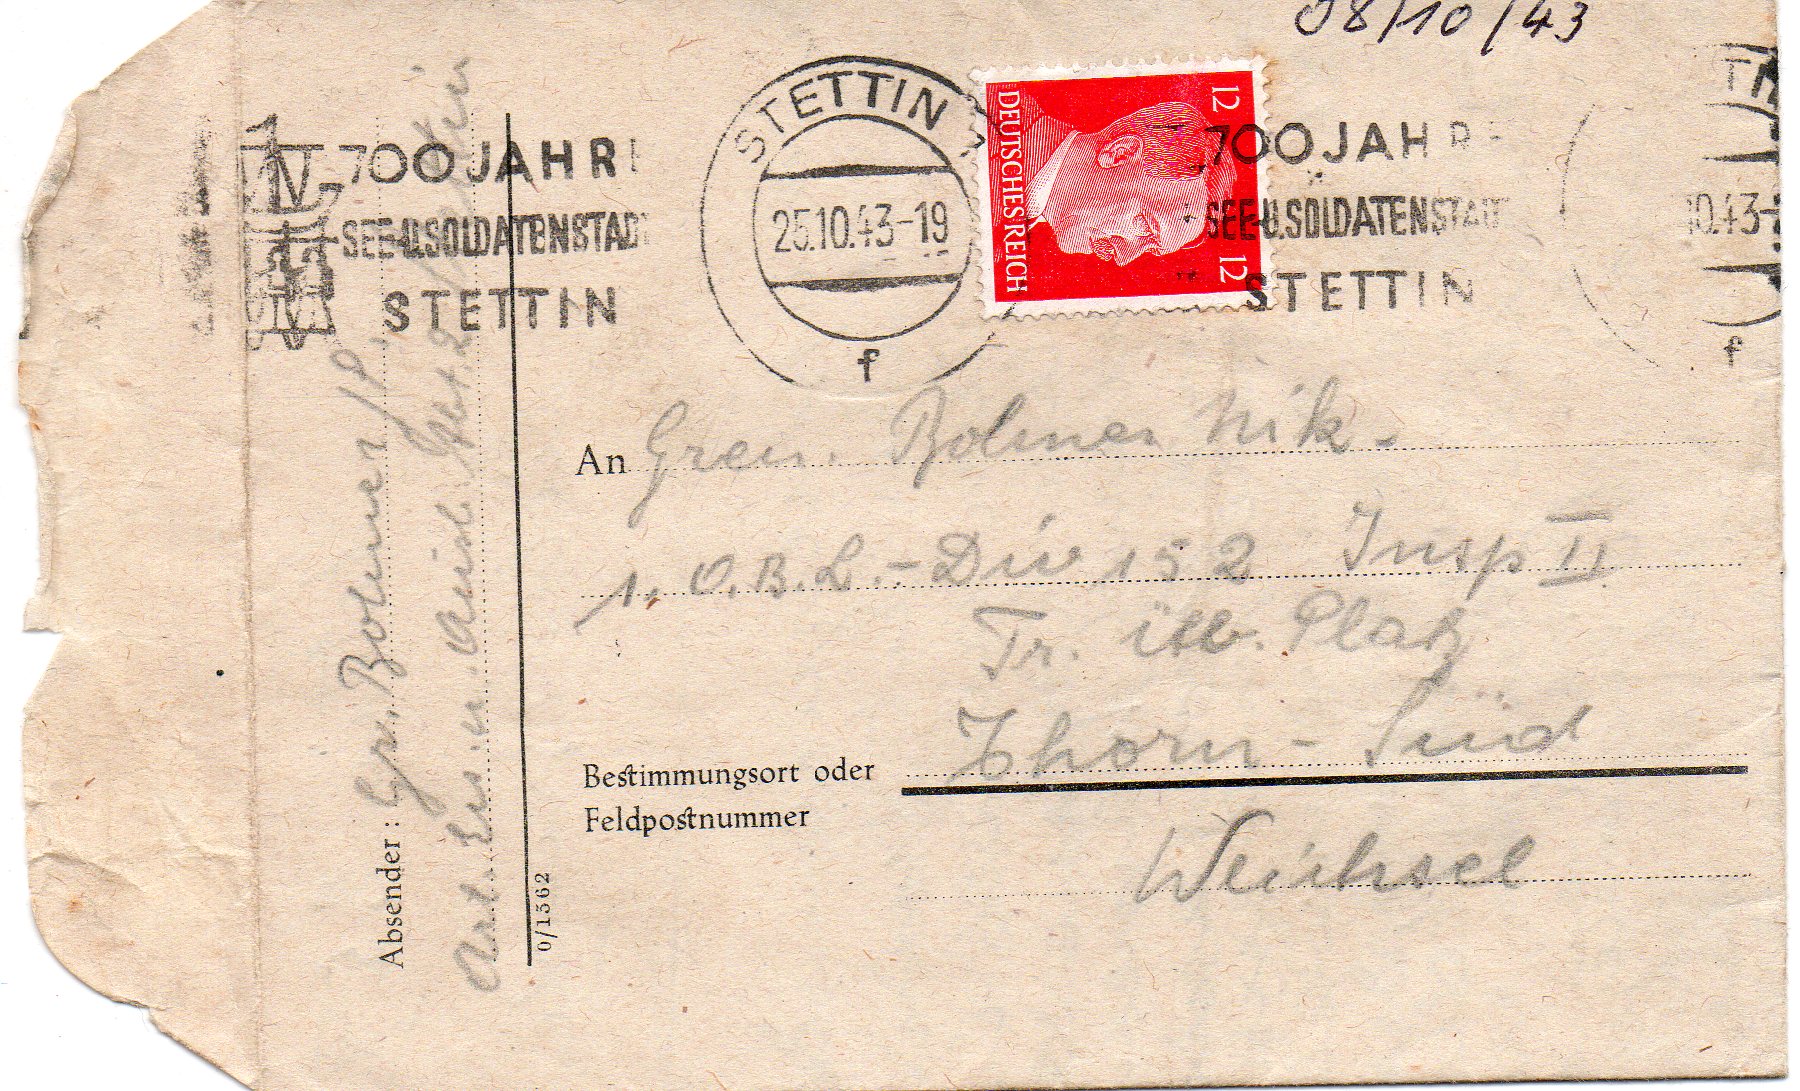 08/10/43
700 JAHRE
SEE-U.SOLDATENSTADT
STETTIN
STETTIN
25.10.43-19
f
DEUTSCHES REICH
12
12
700 JAHRE
SEE-U.SOLDATENSTADT
STETTIN
10.43-
f
An Gren. Bohmer Nik.
1. O.B.L.-Div 152 Insp II
Tr. üb. Platz
Thorn-Süd
Bestimmungsort oder
Feldpostnummer
Weichsel
Absender: Gr. Bohmer P.
Art. Ers. u. Ausb. Abt. 2 Stettin
0/1362